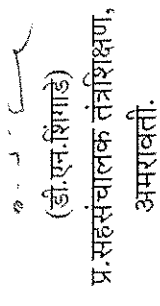 (डी.एन.शिंगाडे)
प्र.सहसंचालक तंत्रशिक्षण,
अमरावती.